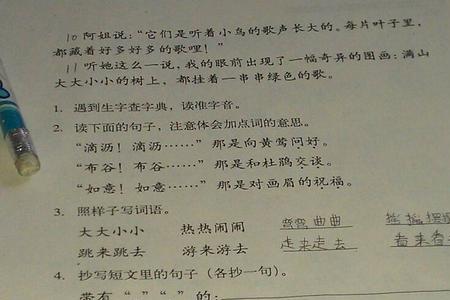 10 阿姐说：“它们是听着小鸟的歌声长大的。每片叶子里，
都藏着好多好多的歌哩！”
11 听她这么一说，我的眼前出现了一幅奇异的图画：满山
大大小小的树上，都挂着一串串绿色的歌。
1. 遇到生字查字典，读准字音。
2. 读下面的句子，注意体会加点词的意思。
“滴沥！滴沥……”那是向黄莺问好。
“布谷！布谷……”那是和杜鹃交谈。
“如意！如意……”那是对画眉的祝福。
3. 照样子写词语。
大大小小 热热闹闹 弯弯曲曲 摇摇摆摆
跳来跳去 游来游去 走来走去 看来看
4. 抄写短文里的句子（各抄一句）。
带有“ ”“ ”的：